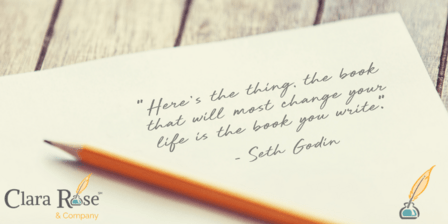 "Here's the thing, the book
that will most change your
life is the book you write."
- Seth Godin
Clara Rose™
& Company